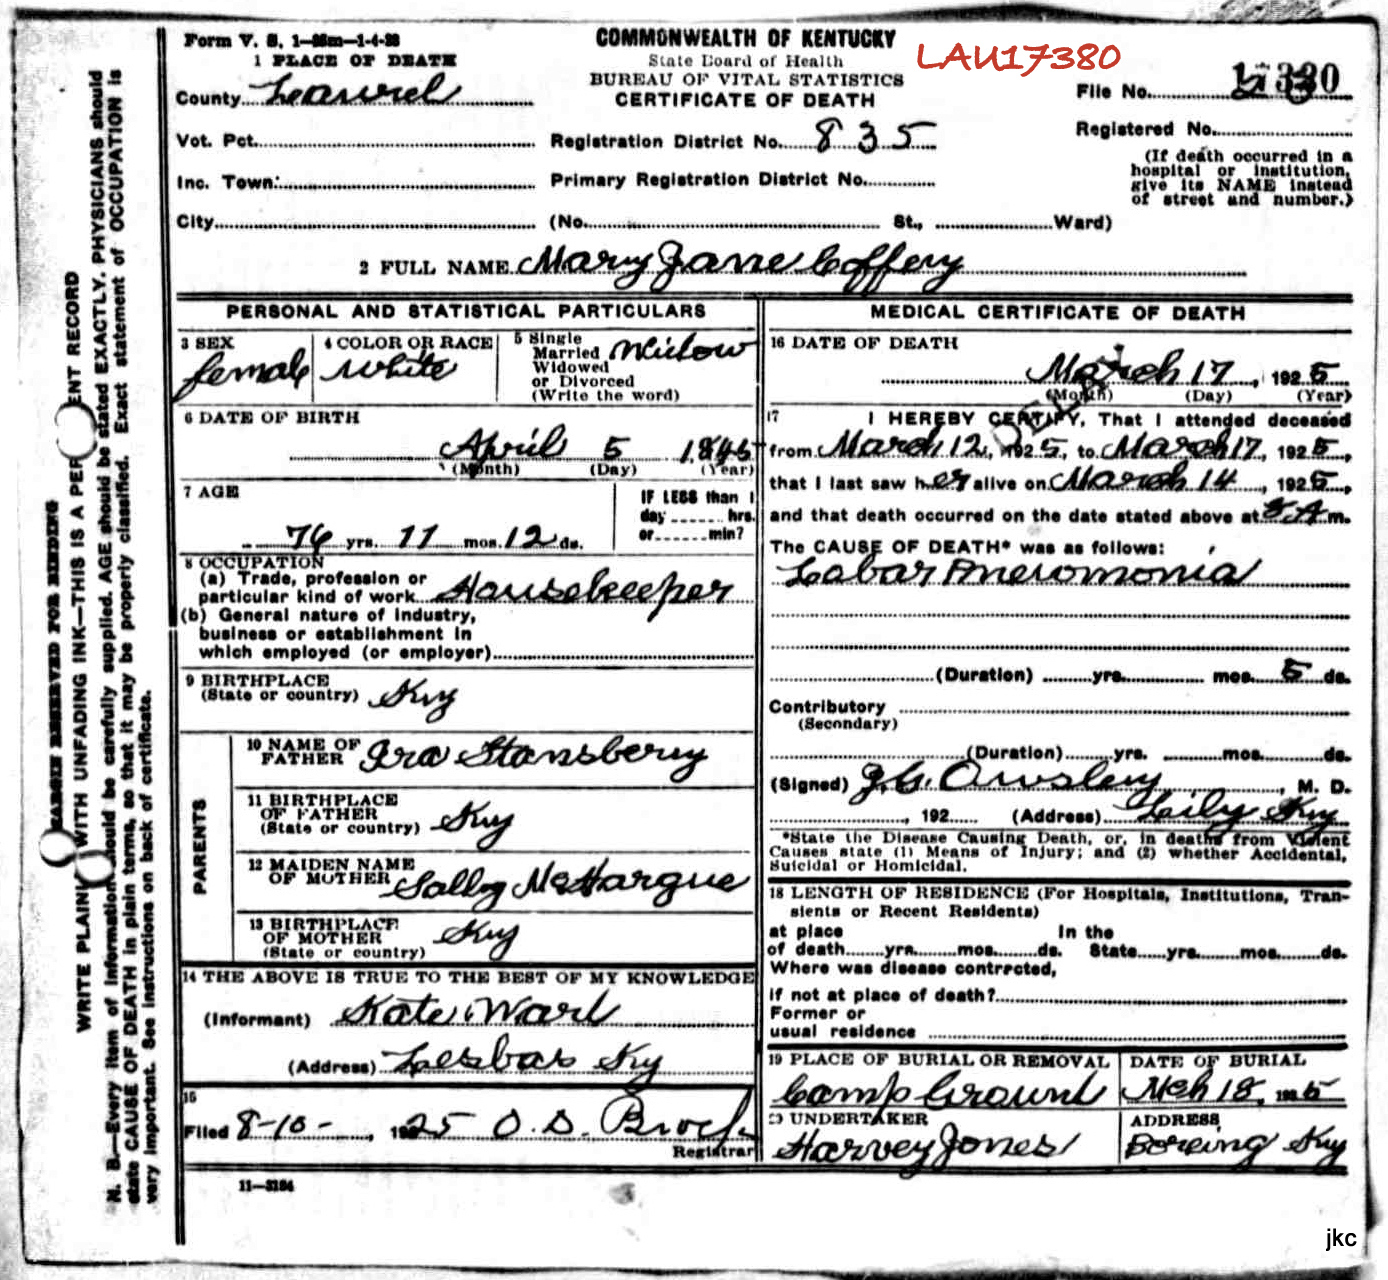 Form V. S. 1—25m—1-4-23
COMMONWEALTH OF KENTUCKY
State Board of Health
BUREAU OF VITAL STATISTICS
CERTIFICATE OF DEATH
LAU17380
File No.
1 PLACE OF DEATH
County Laurel
Vot. Pct.
Registration District No. 835
Registered No.
(If death occurred in a
hospital or institution,
give its NAME instead
of street and number.)
Inc. Town:
Primary Registration District No.
City (No. St., Ward)
2 FULL NAME Mary Jane Coffery
PERSONAL AND STATISTICAL PARTICULARS
3 SEX
female
4 COLOR OR RACE
white
5 Single
Married
Widowed
or Divorced
(Write the word)
Widow
6 DATE OF BIRTH
April 5
(Month) (Day) (Year)
7 AGE
76 yrs. 11 mos. 12 ds.
IF LESS than 1
day hrs.
or min?
8 OCCUPATION
(a) Trade, profession or
particular kind of work Housekeeper
(b) General nature of industry,
business or establishment in
which employed (or employer)
9 BIRTHPLACE
(State or country) Ky
PARENTS
10 NAME OF
FATHER Ira Stansbery
11 BIRTHPLACE
OF FATHER
(State or country) Ky
12 MAIDEN NAME
OF MOTHER Sally McHargue
13 BIRTHPLACE
OF MOTHER
(State or country) Ky
14 THE ABOVE IS TRUE TO THE BEST OF MY KNOWLEDGE
(Informant) Kate Ward
(Address) Lesbas Ky
15
Filed 8-10-, 1925 O. D. Brock
Registrar
11—3184
MEDICAL CERTIFICATE OF DEATH
16 DATE OF DEATH
March 17, 1925
(Month) (Day) (Year)
DELAY
17 I HEREBY CERTIFY, That I attended deceased
from March 12, 1925, to March 17, 1925,
that I last saw her alive on March 14, 1925,
and that death occurred on the date stated above at A m.
The CAUSE OF DEATH* was as follows:
Lobar Pneromonia
(Duration) yrs. mos. 5 ds.
Contributory
(Secondary)
(Duration) yrs. mos. ds.
(Signed) J.G. Owsley, M. D.
, 192 (Address) Lily Ky
*State the Disease Causing Death, or, in deaths from Violent
Causes state (1) Means of Injury; and (2) whether Accidental,
Suicidal or Homicidal.
18 LENGTH OF RESIDENCE (For Hospitals, Institutions, Tran-
sients or Recent Residents)
at place In the
of death yrs. mos. ds. State yrs. mos. ds.
Where was disease contracted,
if not at place of death?
Former or
usual residence
19 PLACE OF BURIAL OR REMOVAL
Camp Ground
DATE OF BURIAL
Mch 18, 1925
20 UNDERTAKER
Harvey Jones
ADDRESS
Boreing Ky
MARGIN RESERVED FOR BINDING
WRITE PLAINLY WITH UNFADING INK—THIS IS A PERMANENT RECORD
N. B.—Every item of information should be carefully supplied. AGE should be stated EXACTLY. PHYSICIANS should
state CAUSE OF DEATH in plain terms, so that it may be properly classified. Exact statement of OCCUPATION is
very important. See instructions on back of certificate.
jkc